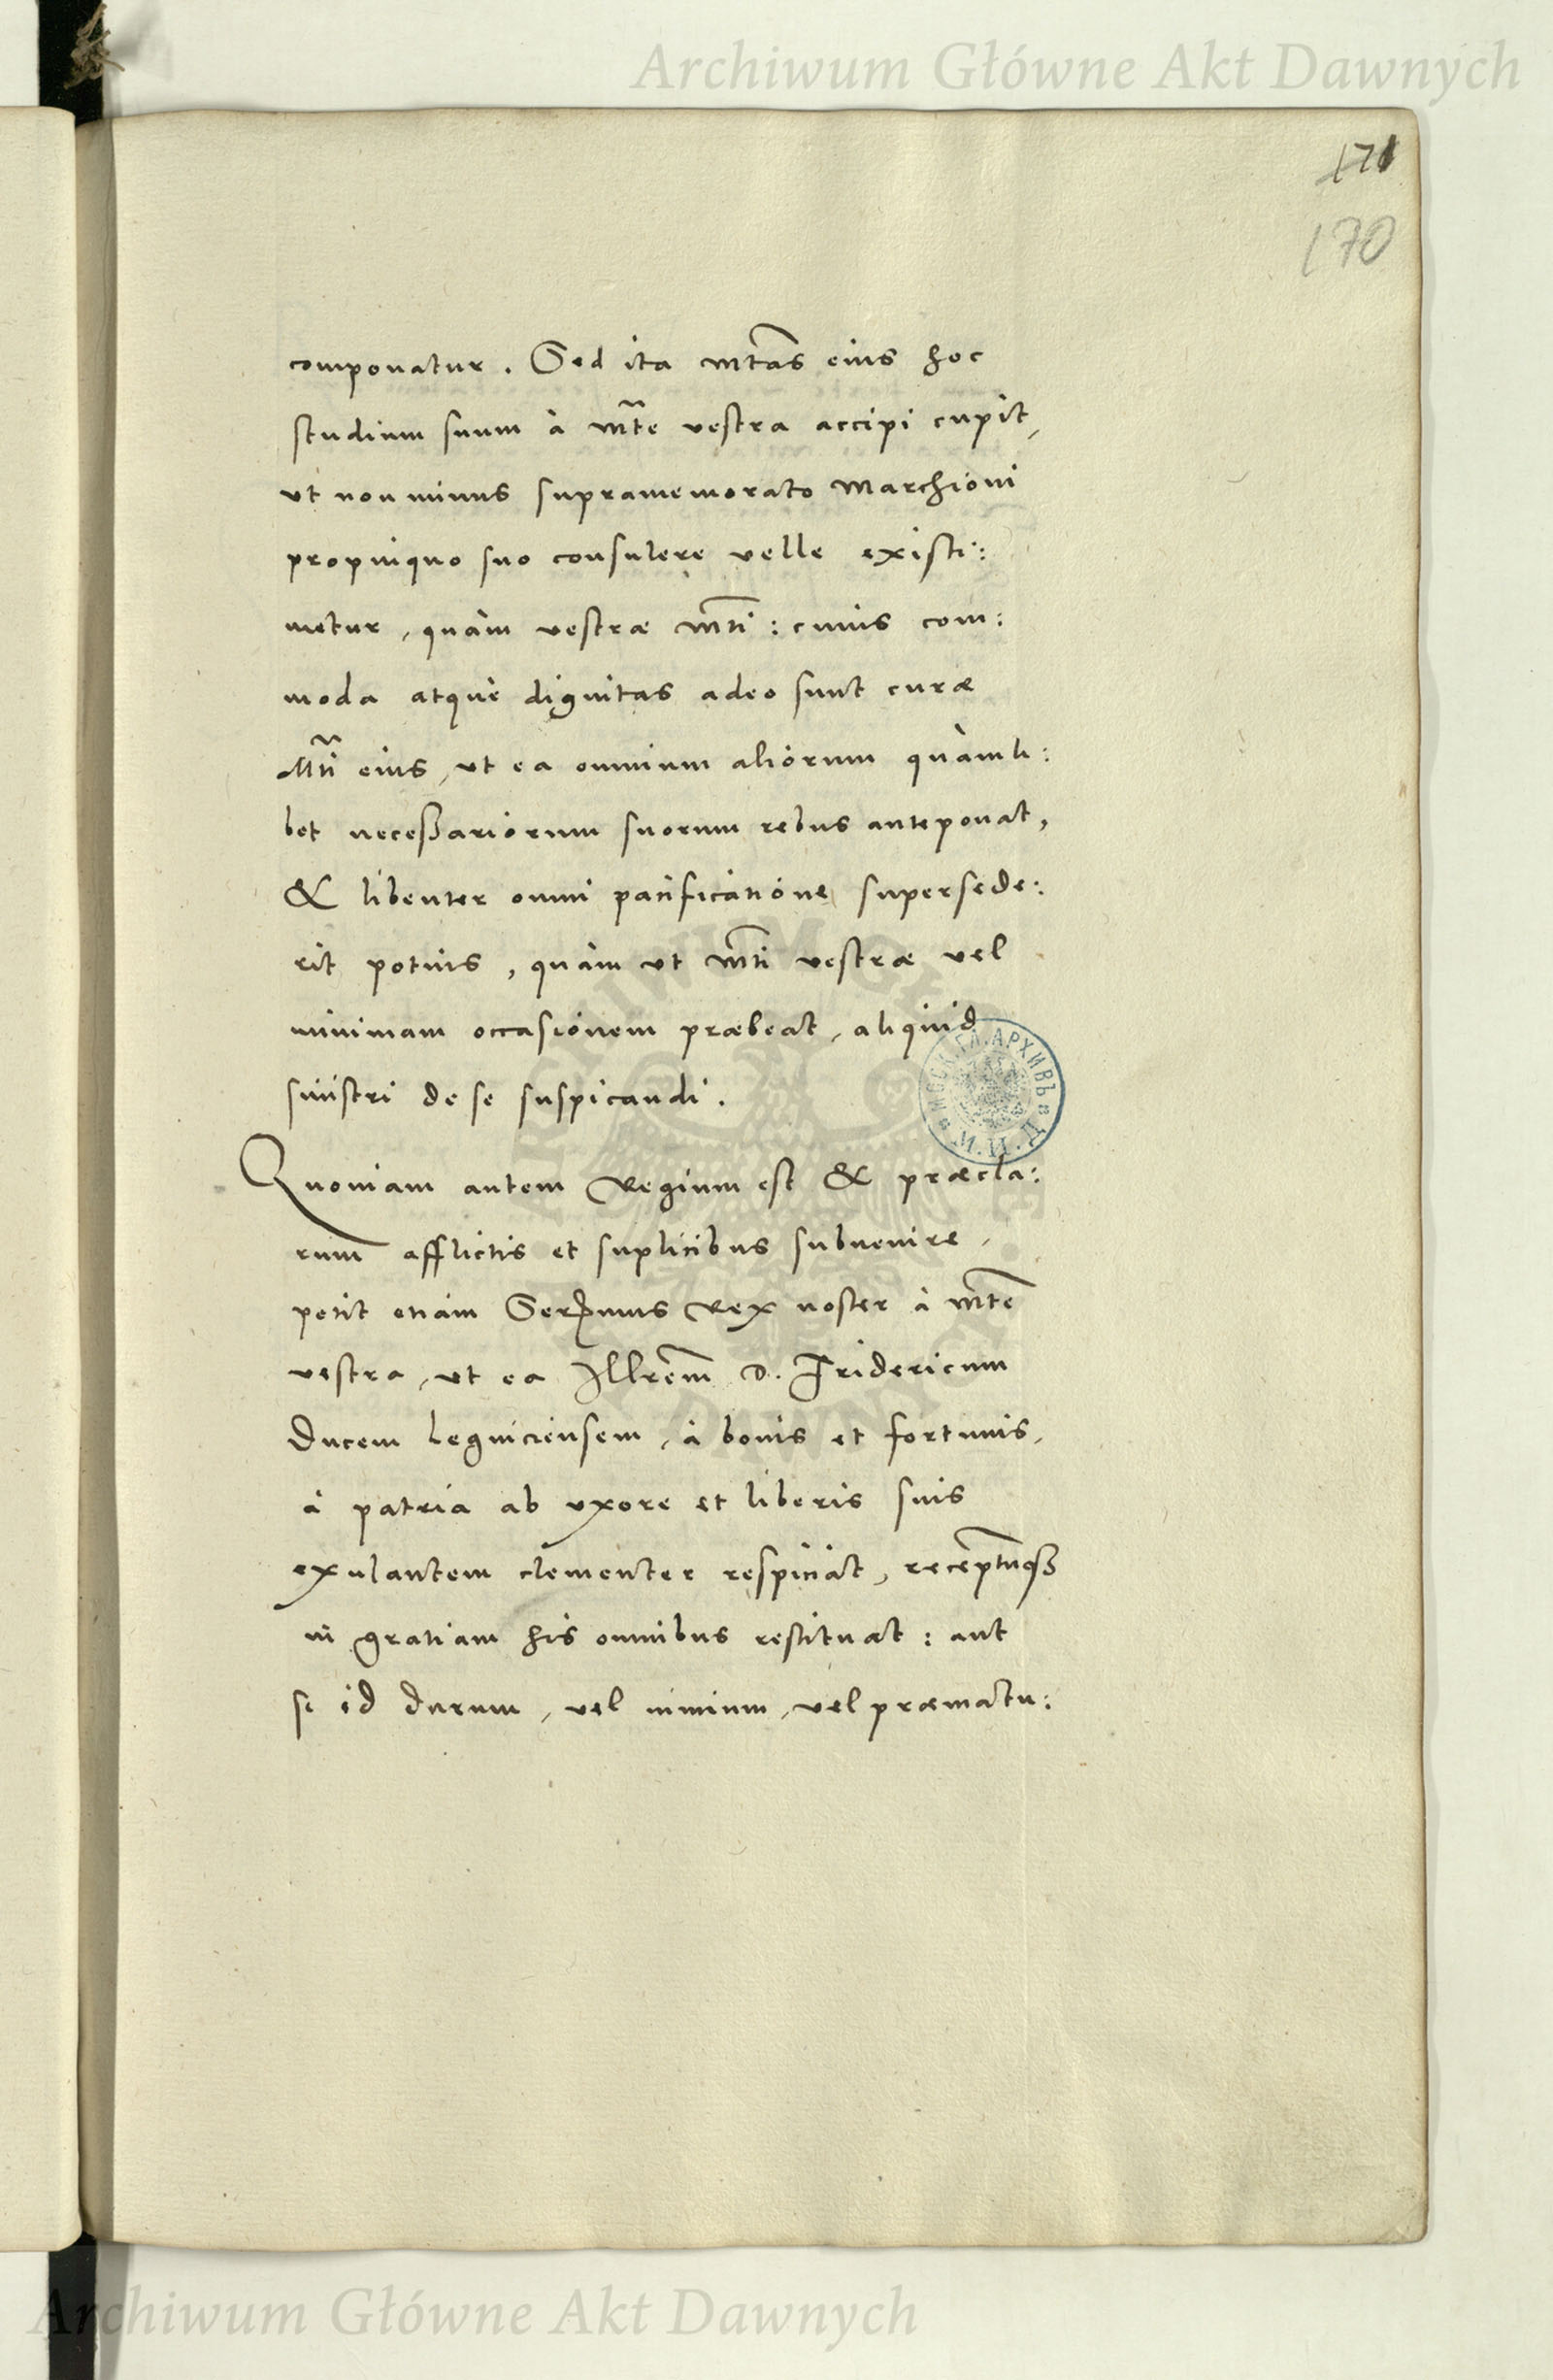 Archiwum Główne Akt Dawnych
171
170
componatur. Sed ita Mtas eius hoc
studium suum à Mte vestra accipi cupit,
ut non minus supramemorato Marchioni
propinquo suo consulere velle existi:
metur, quàm vestræ Mti: cuius com:
moda atque dignitas adeo sunt curæ
Mti eius, ut ea omnium aliorum quamli:
bet neceßariorum suorum rebus anteponat,
& libenter omni pacificatione supersede:
rit potius, quàm ut Mti vestræ vel
minimam occasionem præbeat, aliquid
sinistri de se suspicandi.
Quoniam autem Regium est & præcla:
rum afflictis et suplicibus subvenire,
petit etiam Sermus Rex noster à Mte
vestra, ut ea Illrem D. Fridericum
Ducem Legniciensem, à bonis et fortunis,
à patria ab uxore et liberis suis
exulantem clementer respiciat, receptumq3
in gratiam his omnibus restituat: aut
si id durum, vel nimium, vel præmatu:
Archiwum Główne Akt Dawnych